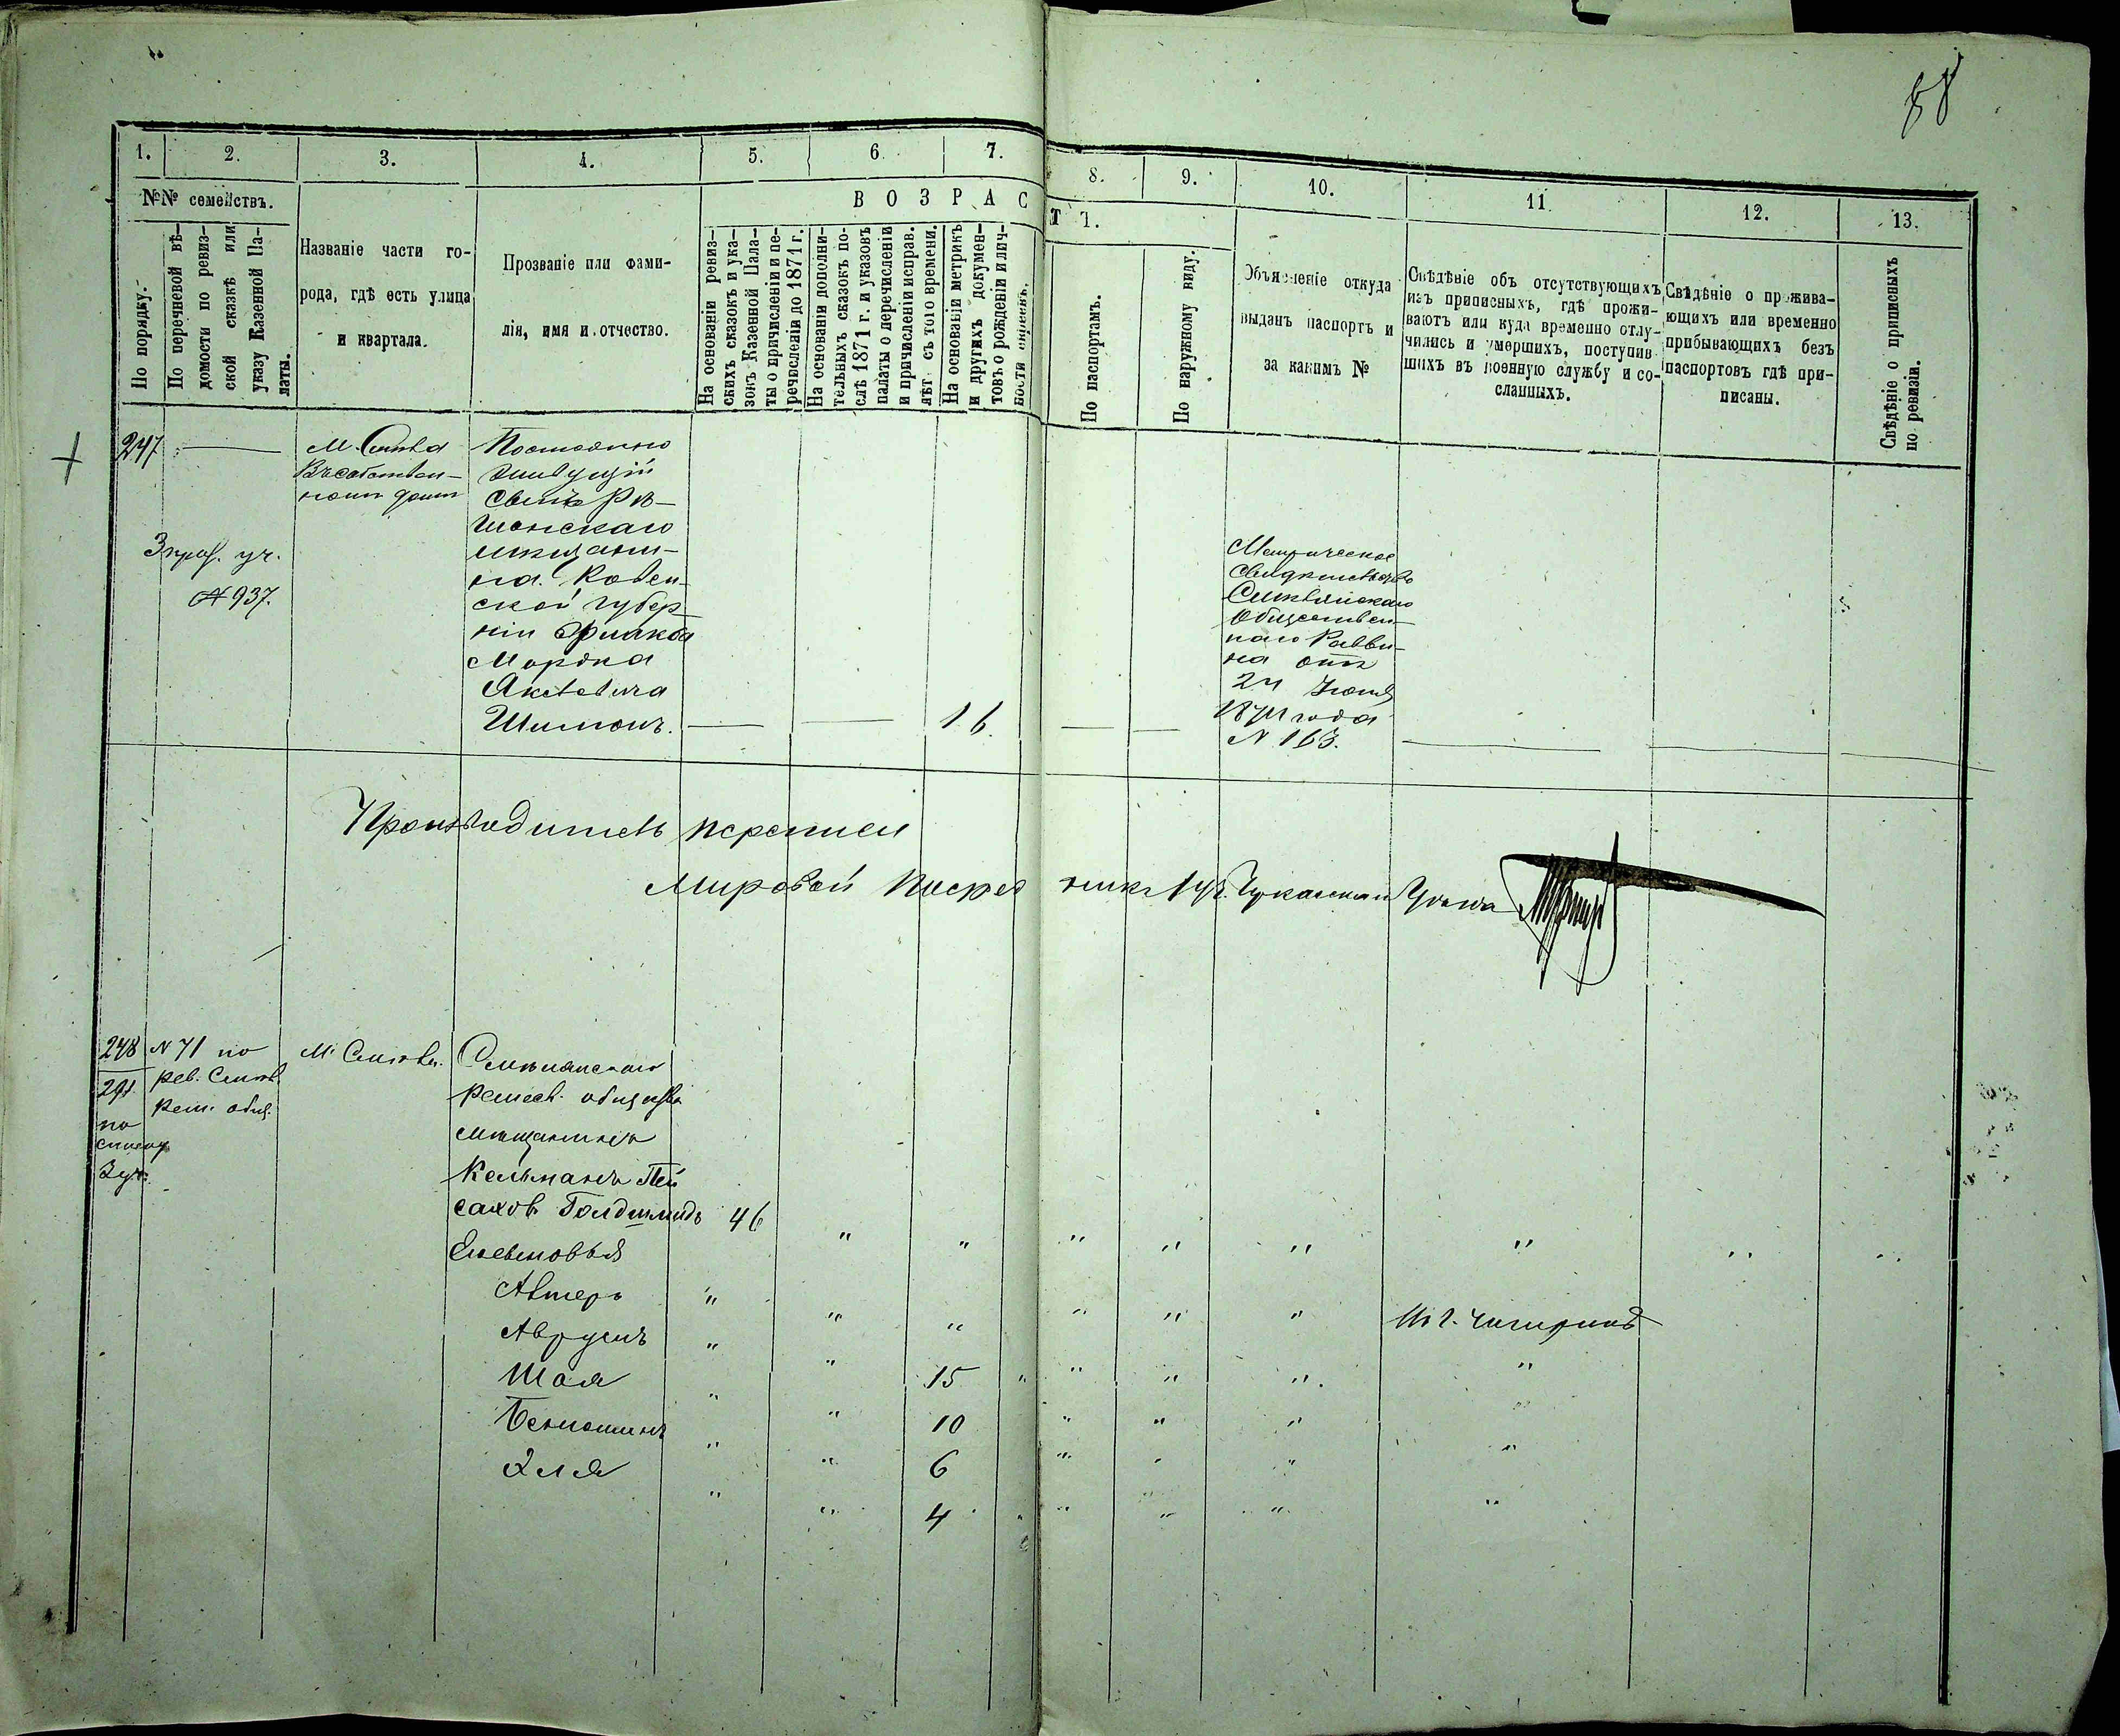 88
1. 2. 3. 4. 5. 6. 7. 8. 9. 10. 11. 12. 13.
№№ семействъ.
По порядку.
По перечневой вѣ-
домости по ревиз-
ской сказкѣ или
указу Казенной Па-
латы.
Названіе части го-
рода, гдѣ есть улица
и квартала.
Прозваніе или фами-
лія, имя и отчество.
ВОЗРАСТЪ.
На основаніи ревиз-
скихъ сказокъ и ука-
зокъ Казенной Пала-
ты о причисленіи и пе-
речисленіи до 1871 г.
На основаніи дополни-
тельныхъ сказокъ по-
слѣ 1871 г. и указовъ
палаты о перечисленіи
и причисленіи исправ.
лѣт съ того времени.
На основаніи метрикъ
и другихъ докумен-
товъ о рожденіи и лич-
ности
По паспортамъ.
По наружному виду.
Объясненіе откуда
выданъ паспортъ и
за какимъ №
Свѣдѣніе объ отсутствующихъ
изъ приписныхъ, гдѣ прожи-
ваютъ или куда временно отлу-
чились и умершихъ, поступив-
шихъ въ военную службу и со-
сланныхъ.
Свѣдѣніе о прожива-
ющихъ или временно
прибывающихъ безъ
паспортовъ гдѣ при-
писаны.
Свѣдѣніе о приписныхъ
по ревизіи.
247
М. Смѣла
Въ собствен-
номъ домѣ
3 уч.
№ 937.
Постоянно
живущій
Шонскаго
мѣщани-
на Ковен-
ской губер-
ніи
Мордка
Шимонъ. 16
Метрическое
свидѣтельство
Смѣлянскаго
Общественн-
наго Равви-
на отъ
24
года
N 163.
Производитель переписи
Мировой Посредникъ 1 уч. Черкасскаго Уѣзда
248
291
по
списку
3 уч.
N 71 по
рев. Смѣл.
рем. общ.
М. Смѣла.
Смѣлянскаго
ремесл. общества
мѣщанинъ
Кельманъ Пей
сахов. Голдшмидъ 46
Сыновья
Авրумъ
Шая 15
Беньоминъ 10
Эля 6
4
Въ г. Чигиринѣ